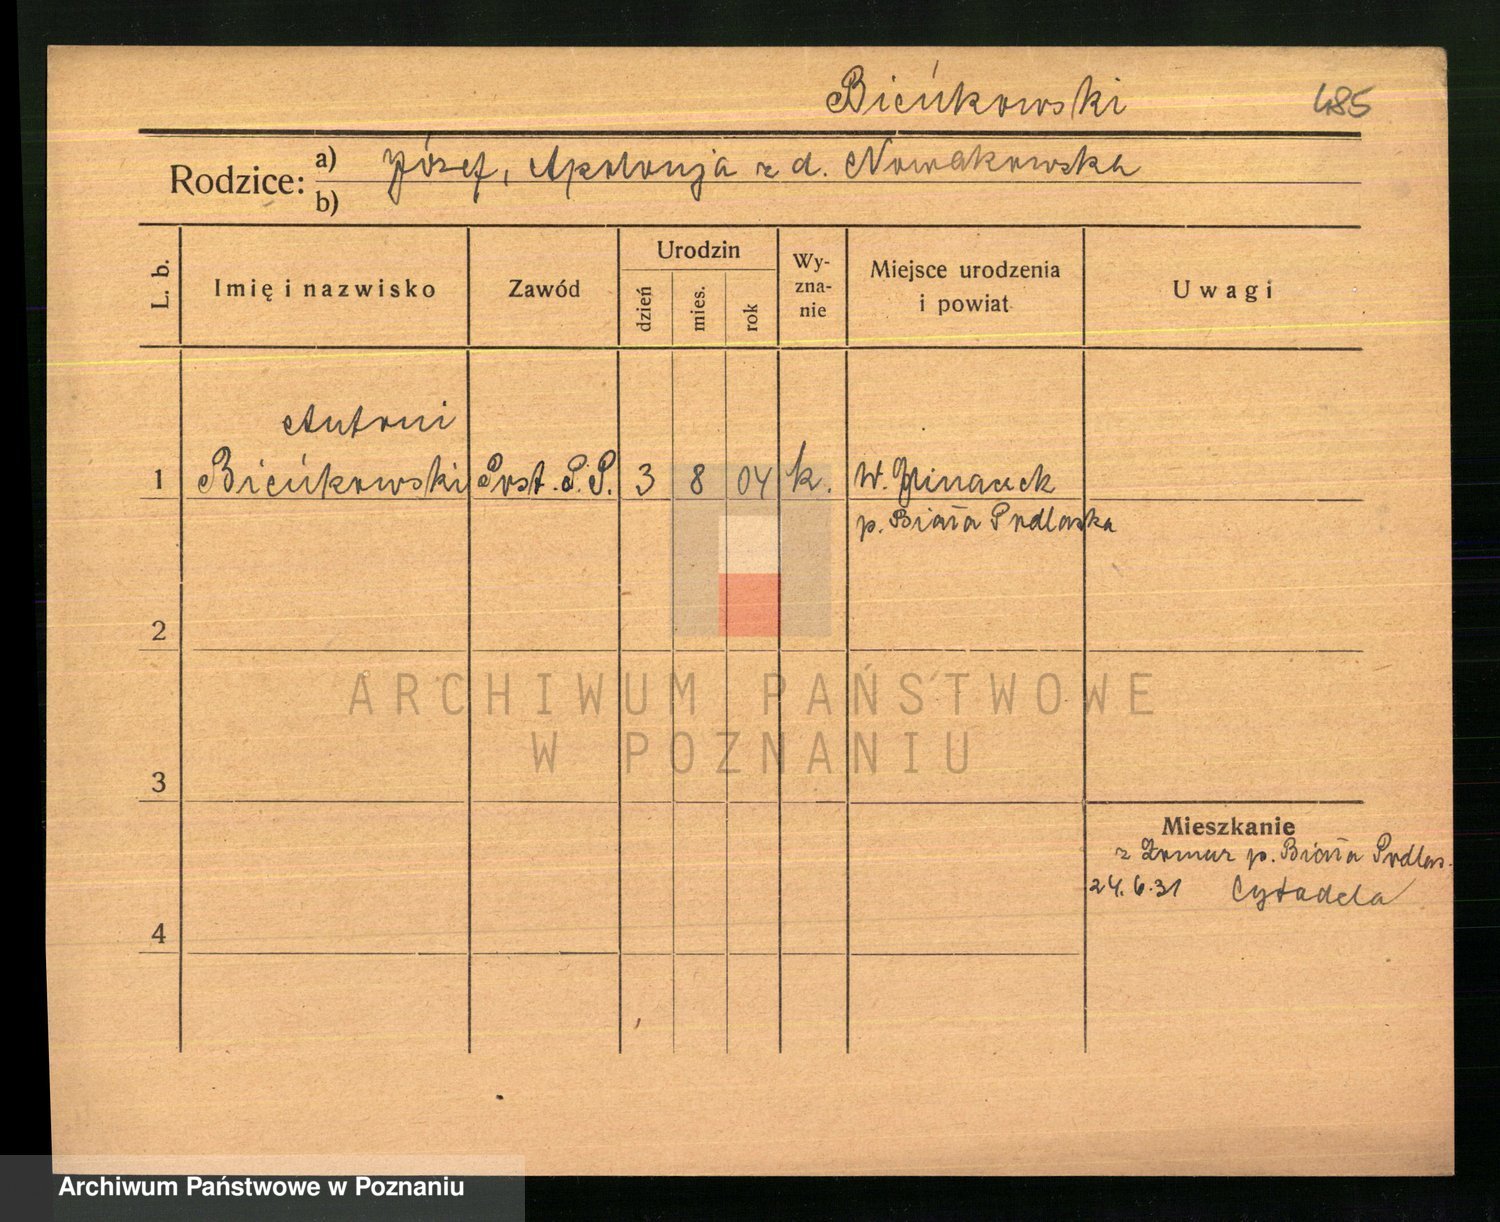 Bieńkowski 485
Rodzice: a) Józef, Apolonja z d. Nowakowska
b)
L. b. Imię i nazwisko Zawód Urodzin dzień mies. rok Wy-zna-nie Miejsce urodzenia i powiat Uwagi
Antoni
1 Bieńkowski Post. P.P. 3 8 04 k. W.
p. Biała Podlaska
2
ARCHIWUM PAŃSTWOWE
W POZNANIU
3
Mieszkanie
z p. Biała Podlas.
24.6.31 Cytadela
4
Archiwum Państwowe w Poznaniu